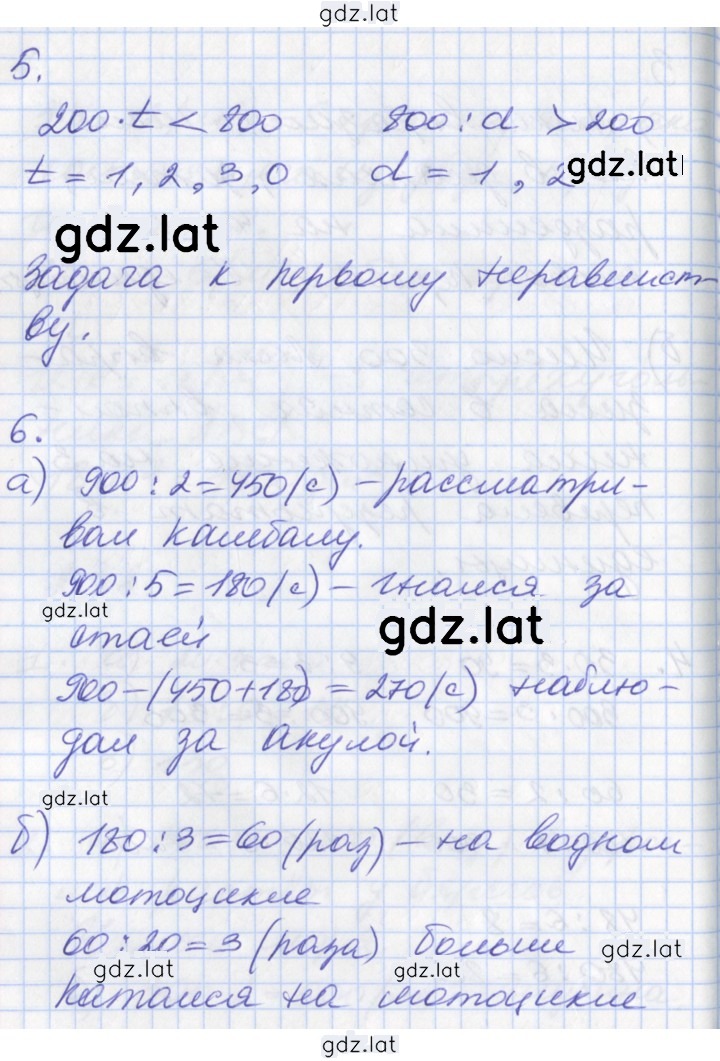 gdz.lat
5.
200·t < 800 800:d > 200
t = 1, 2, 3, 0 d = 1, 2
gdz.lat
gdz.lat
Задача к первому неравенст-
ву.
6.
а) 900:2=450(с) – рассматри-
вал камбалу.
900:5=180(с) – гнался за
gdz.lat
стаей
gdz.lat
900–(450+180) = 270(с) наблю-
дал за акулой.
gdz.lat
б) 180:3=60(раз) – на водном
мотоцикле
60:20=3(раза) больше
gdz.lat
gdz.lat
gdz.lat
катался на мотоцикле
gdz.lat